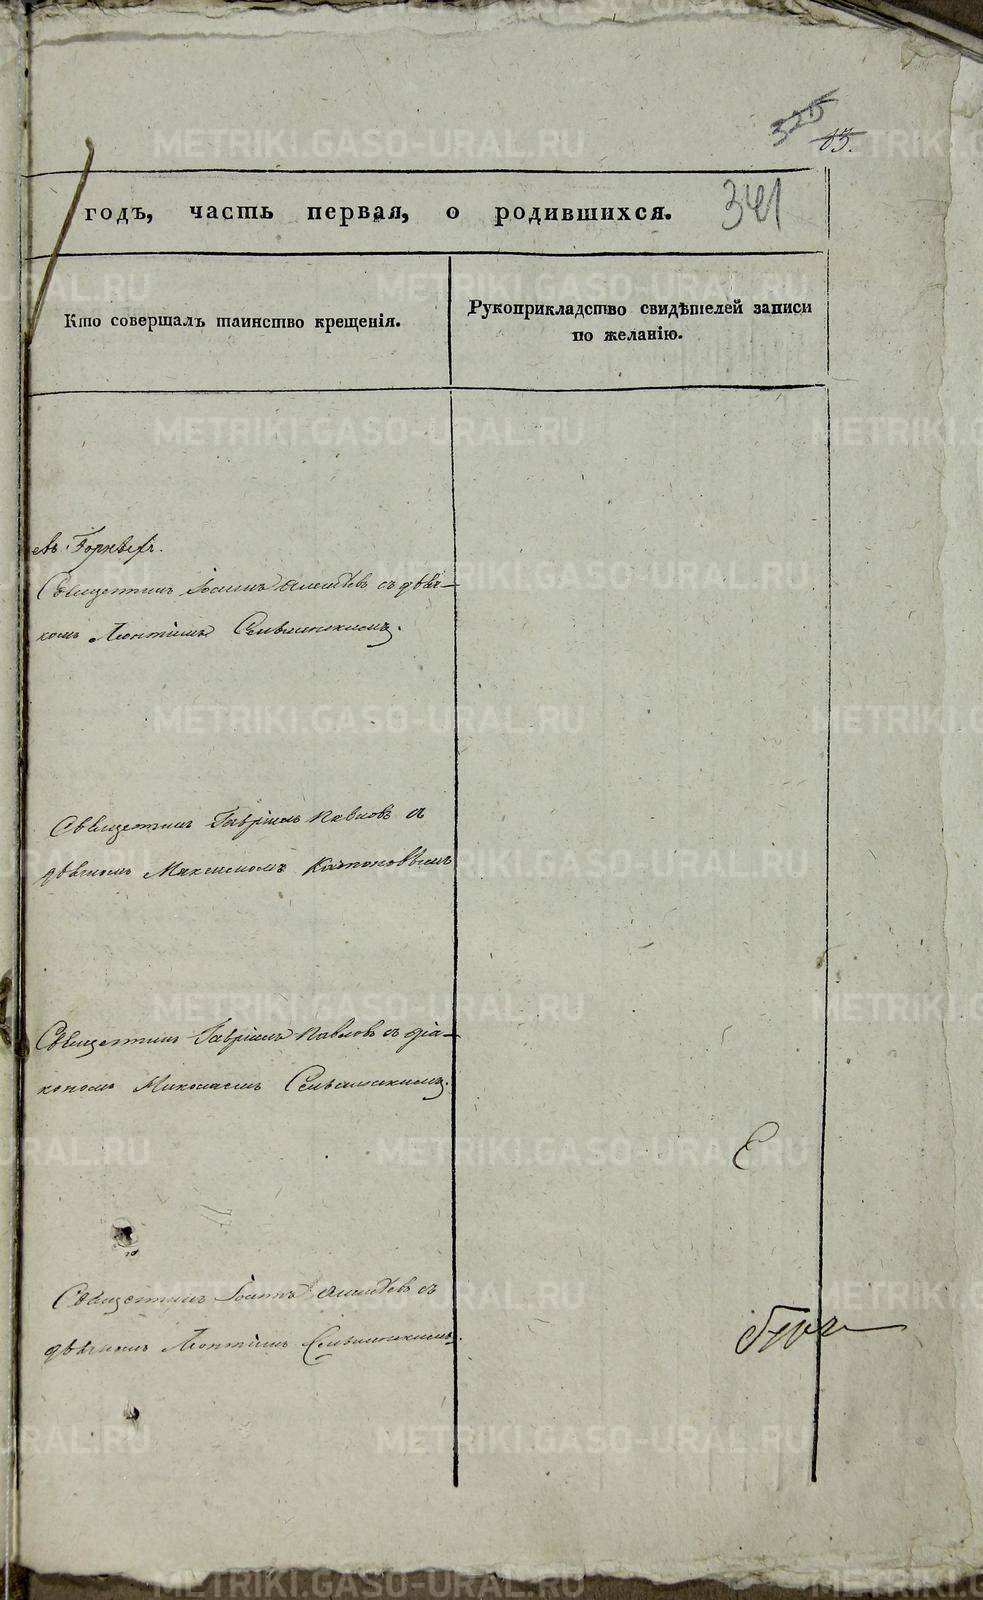 325
13.
годъ, часть первая, о родившихся.
341
Кто совершалъ таинство крещенія.
Рукоприкладство свидѣтелей записи
по желанію.
Священникъ Іоаннъ съ дьяч-
комъ Леонтіемъ Сельминскимъ.
Священникъ Гавріилъ Павловъ съ
дьячкомъ Максимомъ Капоновымъ
Священникъ Гавріилъ Павловъ съ діа-
кономъ Николаемъ Сельминскимъ.
Священникъ Іоаннъ съ
дьячкомъ Леонтіемъ Сельминскимъ.
METRIKI.GASO-URAL.RU